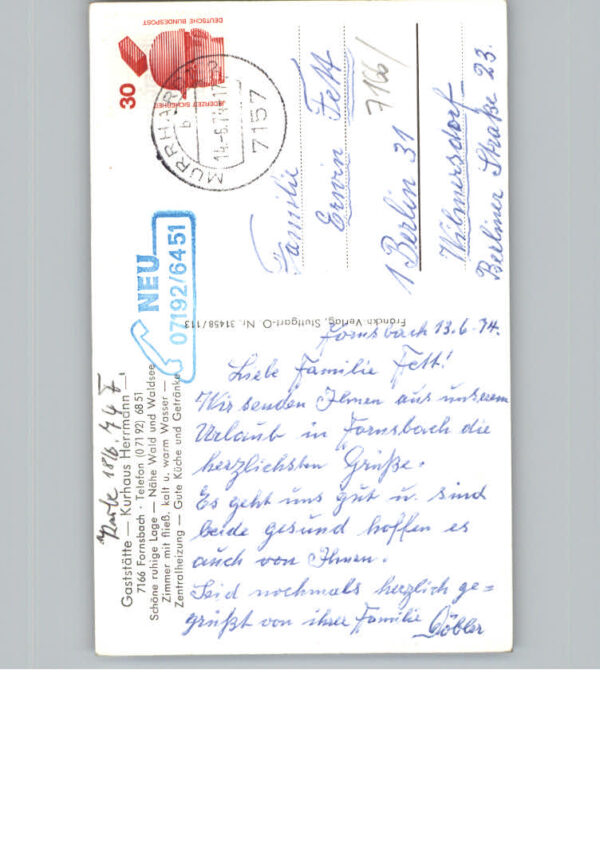 DEUTSCHE BUNDESPOST
JEDERZEIT SICHERHEIT
30
MURRHARDT
b
14.-6.74-17
7157
NEU
07192/6451
Familie
Erwin Fett
7166/
1 Berlin 31
Wilmersdorf
Berliner Straße 23.
Franckh-Verlag, Stuttgart-O Nr. 31458/113
Gaststätte — Kurhaus Herrmann
7166 Fornsbach · Telefon (0 71 92) 68 51
Schöne ruhige Lage — Nähe Wald und Waldsee
Zimmer mit fließ. kalt u. warm Wasser —
Zentralheizung — Gute Küche und Getränke
Karte 18/6. 74 F
Fornsbach 13.6.74.
Liebe Familie Fett!
Wir senden Ihnen aus unserem
Urlaub in Fornsbach die
herzlichsten Grüße.
Es geht uns gut u. sind
beide gesund hoffen es
auch von Ihnen.
Seid nochmals herzlich ge=
grüßt von ihrer Familie Göbler